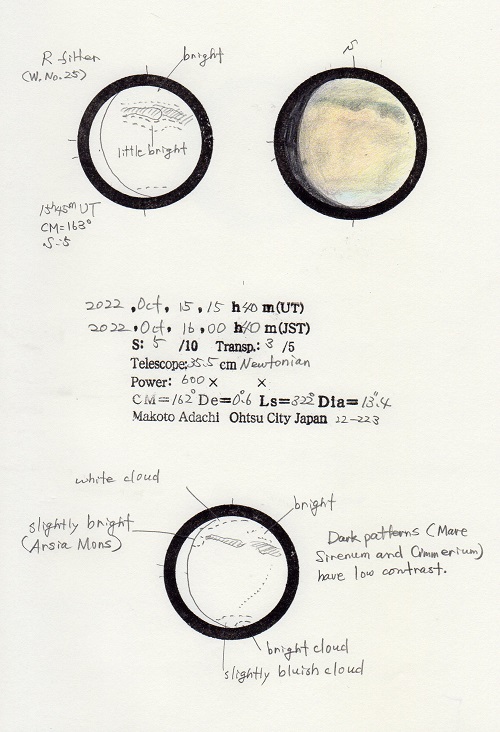 R filter
(W. No. 25)
bright
little bright
S
15h45m UT
CM=163°
S:5
2022 , Oct , 15 , 15 h 40 m (UT)
2022 , Oct , 16 , 00 h 40 m (JST)
S: 5 /10 Transp.: 3 /5
Telescope: 35.5 cm Newtonian
Power: 600 × ×
CM=162° De=0.°6 Ls=322° Dia=13."4
Makoto Adachi Ohtsu City Japan 22-223
white cloud
slightly bright
(Arsia Mons)
bright
Dark patterns (Mare
Sirenum and Cimmerium)
have low contrast.
bright cloud
slightly bluish cloud